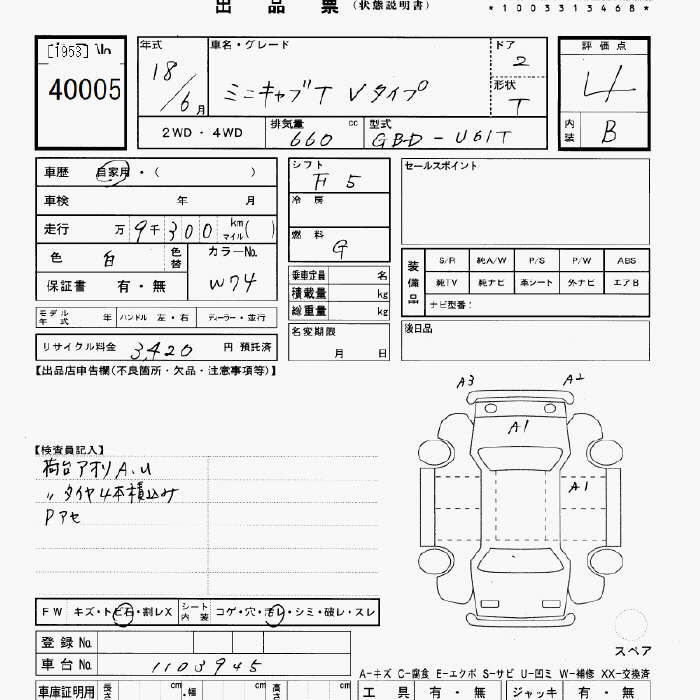 出品票(状態説明書)
*1003313468*
[1953] No
40005
年式 18/6月
車名・グレード ミニキャブT Vタイプ
ドア 2
形状 T
評価点 4
内装 B
2WD・4WD
排気量 660 cc
型式 GBD-U61T
車歴 自家用・( )
車検 年 月
走行 万 9千 300 km マイル( )
色 白 色替
カラーNo. W74
保証書 有・無
モデル年式 年 ハンドル 左・右 ディーラー・並行
リサイクル料金 3,420 円 預託済
シフト F5
冷房
燃料 G
乗車定員 名
積載量 kg
総重量 kg
名変期限 月 日
セールスポイント
装備品
S/R 純A/W P/S P/W ABS
純TV 純ナビ 革シート 外ナビ エアB
ナビ型番:
後日品
【出品店申告欄(不良箇所・欠品・注意事項等)】
【検査員記入】
荷台アオリ A.U
〃 タイヤ4本積込み
Pアセ
A3 A2
A1
A1
スペア
FW キズ・トビ石・割レX
シート内装 コゲ・穴・汚レ・シミ・破レ・スレ
登録No.
車台No. 1103945
A-キズ C-腐食 E-エクボ S-サビ U-凹ミ W-補修 XX-交換済
車庫証明用 長さ cm ・幅 cm 高さ cm
工具 有・無 ジャッキ 有・無